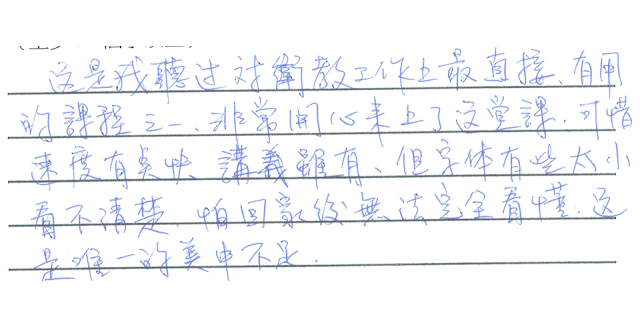 这是我聽过对衛教工作上最直接、有用
的課程之一、非常開心来上了这堂課.可惜
速度有点快 講義雖有、但字体有些太小
看不清楚,怕回家後無法完全看懂.这
是唯一的美中不足.